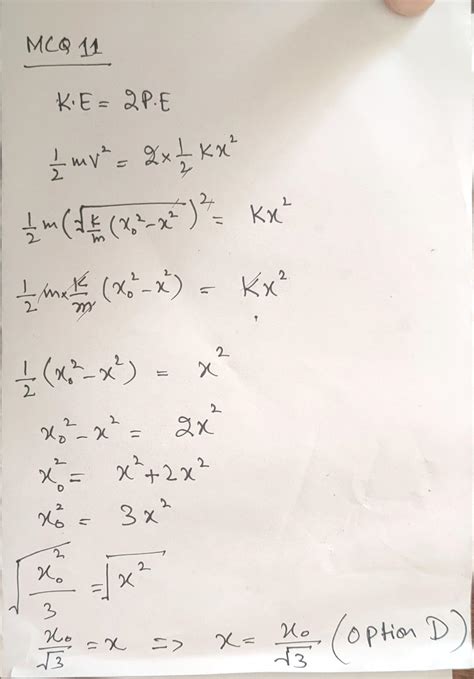 MCQ 11
K.E = 2P.E
½ mv² = 2 × ½ Kx²
½ m(√(k/m (x₀² − x²)))² = Kx²
½ m × K/m (x₀² − x²) = Kx²
½ (x₀² − x²) = x²
x₀² − x² = 2x²
x₀² = x² + 2x²
x₀² = 3x²
√(x₀²/3) = √x²
x₀/√3 = x => x = x₀/√3 (option D)